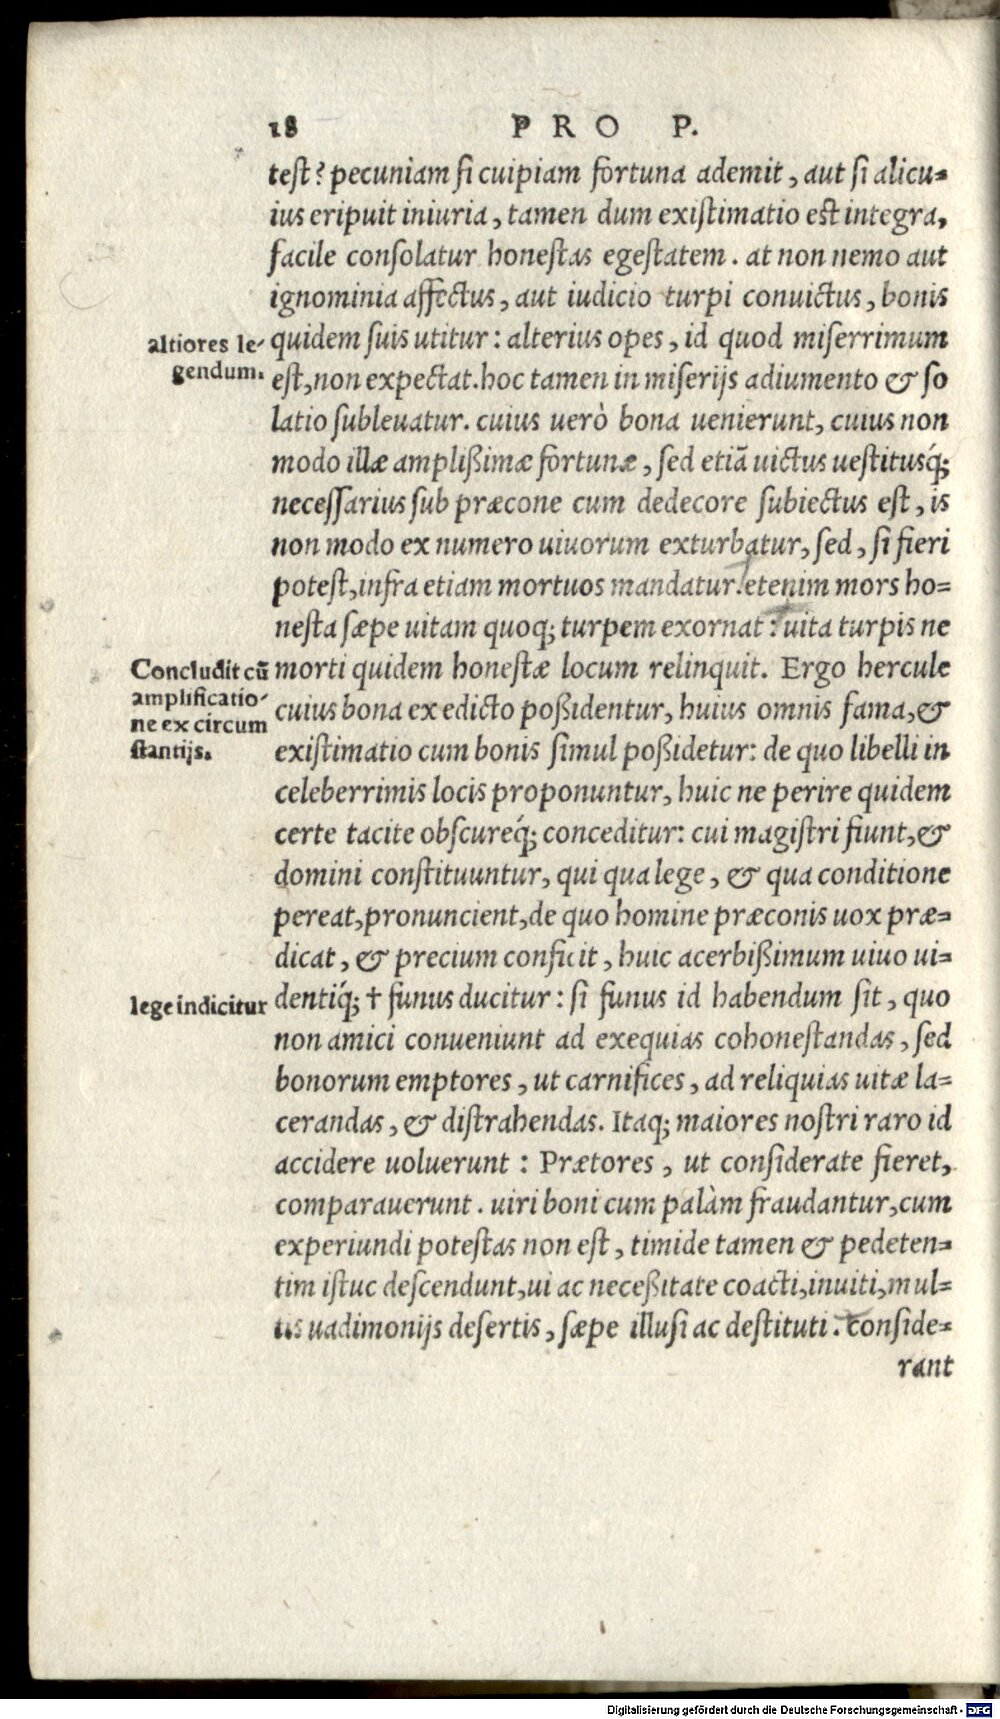 18 PRO P.
test? pecuniam si cuipiam fortuna ademit, aut si alicu-
ius eripuit iniuria, tamen dum existimatio est integra,
facile consolatur honestas egestatem. at non nemo aut
ignominia affectus, aut iudicio turpi convictus, bonis
altiores le-
gendum.
quidem suis utitur: alterius opes, id quod miserrimum
est, non expectat. hoc tamen in miserijs adiumento & so
latio sublevatur. cuius verò bona uenierunt, cuius non
modo illæ amplißimæ fortunæ, sed etiā uictus uestitusq́;
necessarius sub præcone cum dedecore subiectus est, is
non modo ex numero uiuorum exturbatur, sed, si fieri
potest, infra etiam mortuos mandatur. etenim mors ho=
nesta sæpe uitam quoq; turpem exornat: uita turpis ne
Concludit cū
amplificatio-
ne ex circum
stantijs.
morti quidem honestæ locum relinquit. Ergo hercule
cuius bona ex edicto poßidentur, huius omnis fama, &
existimatio cum bonis simul poßidetur: de quo libelli in
celeberrimis locis proponuntur, huic ne perire quidem
certe tacite obscureq́; conceditur: cui magistri fiunt, &
domini constituuntur, qui qua lege, & qua conditione
pereat, pronuncient, de quo homine præconis uox præ=
dicat, & precium conficit, huic acerbißimum uiuo ui=
lege indicitur
dentiq́; † funus ducitur: si funus id habendum sit, quo
non amici conueniunt ad exequias cohonestandas, sed
bonorum emptores, ut carnifices, ad reliquias uitæ la=
cerandas, & distrahendas. Itaq; maiores nostri raro id
accidere uoluerunt: Prætores, ut considerate fieret,
comparauerunt. uiri boni cum palàm fraudantur, cum
experiundi potestas non est, timide tamen & pedeten=
tim istuc descendunt, ui ac neceßitate coacti, inuiti, mul=
tis uadimonijs desertis, sæpe illusi ac destituti. conside=
rant
Digitalisierung gefördert durch die Deutsche Forschungsgemeinschaft - DFG